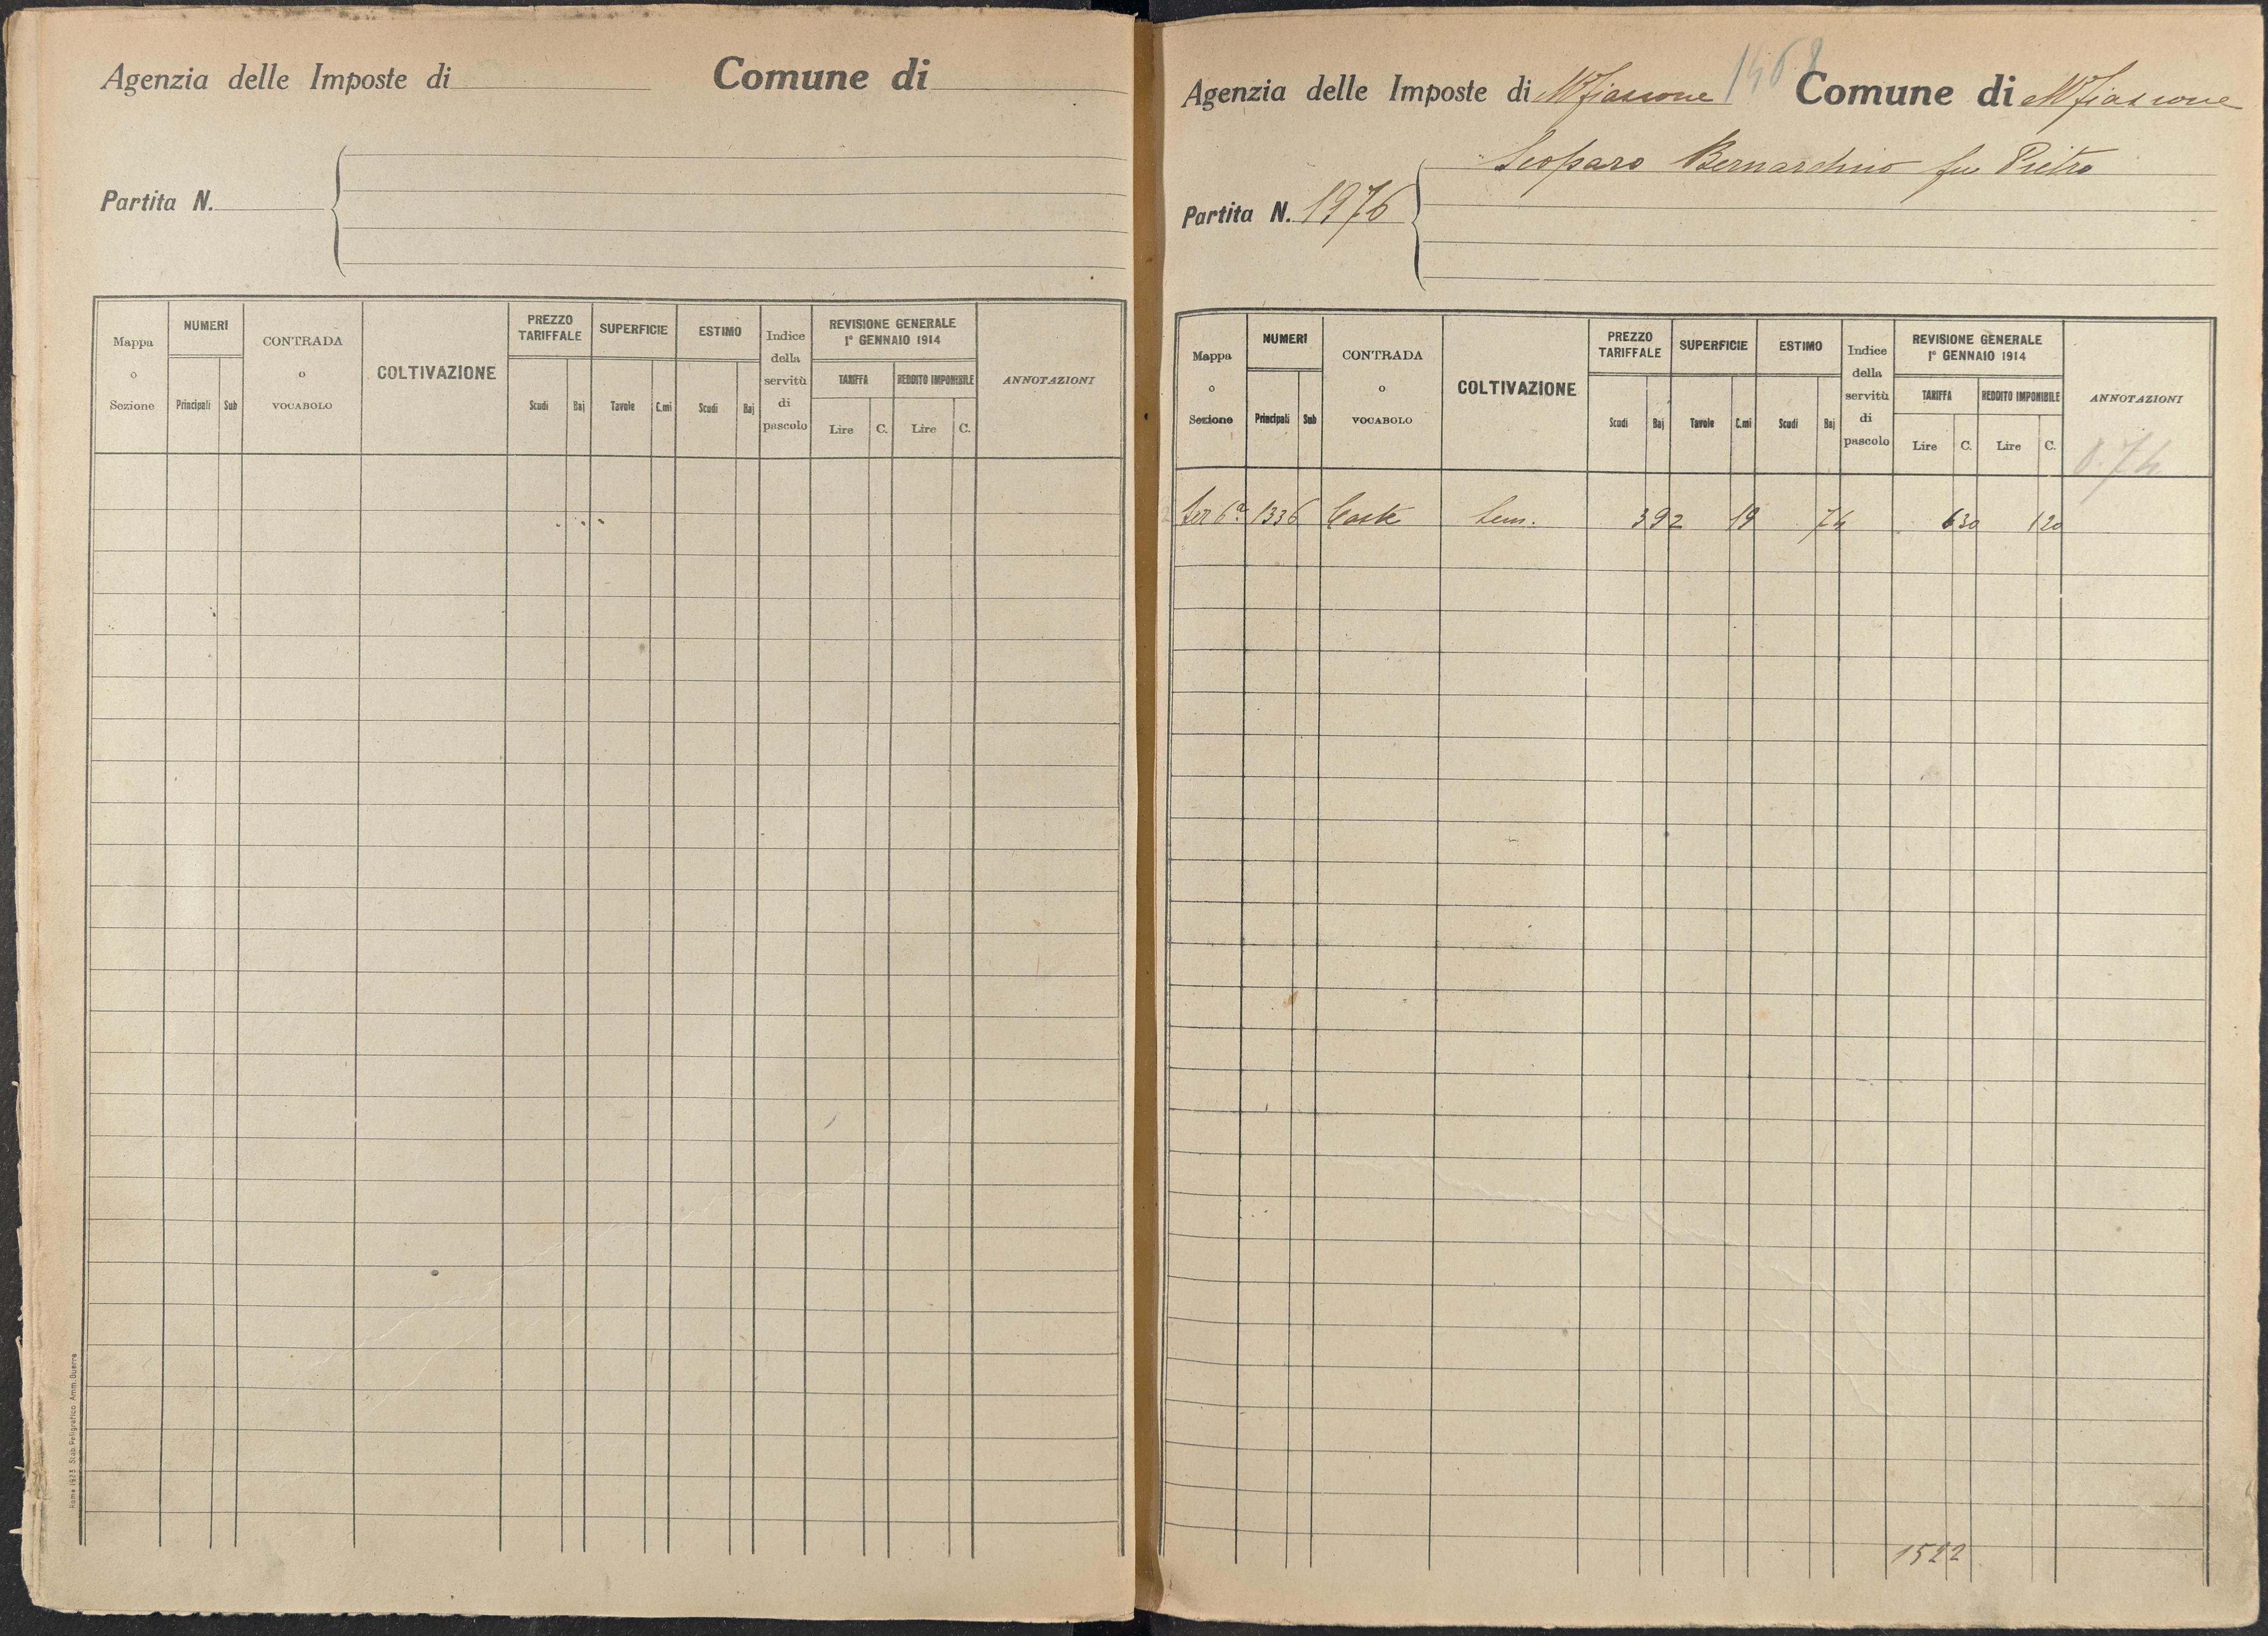 Agenzia delle Imposte di Comune di
Partita N.
Mappa o Sezione NUMERI Principali Sub CONTRADA o VOCABOLO COLTIVAZIONE PREZZO TARIFFALE Scudi Baj SUPERFICIE Tavole C.mi ESTIMO Scudi Baj Indice della servitù di pascolo REVISIONE GENERALE 1° GENNAIO 1914 TARIFFA Lire C. REDDITO IMPONIBILE Lire C. ANNOTAZIONI
Roma 1923 Stab. Poligrafico Amm. Guerra
1468
Agenzia delle Imposte di Mfiascone Comune di Mfiascone
Bernardino fu Pietro
Partita N. 1976
Mappa o Sezione NUMERI Principali Sub CONTRADA o VOCABOLO COLTIVAZIONE PREZZO TARIFFALE Scudi Baj SUPERFICIE Tavole C.mi ESTIMO Scudi Baj Indice della servitù di pascolo REVISIONE GENERALE 1° GENNAIO 1914 TARIFFA Lire C. REDDITO IMPONIBILE Lire C. ANNOTAZIONI
0.74
Sez 6ª 1336 Coste Sem. 392 19 74 630 120
1522